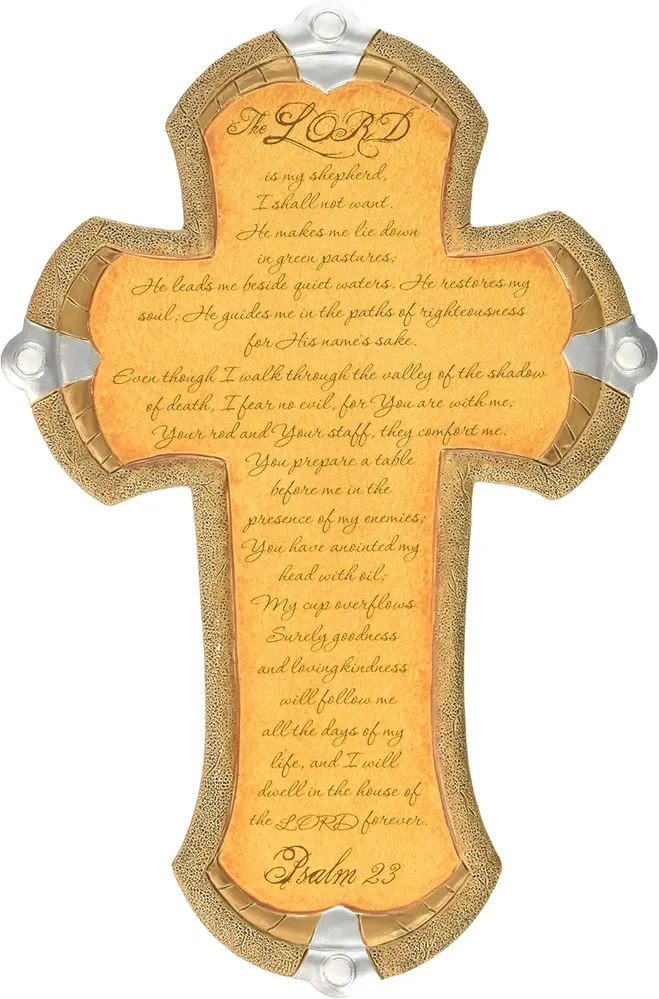 The LORD
is my shepherd,
I shall not want.
He makes me lie down
in green pastures;
He leads me beside quiet waters. He restores my
soul; He guides me in the paths of righteousness
for His name's sake.
Even though I walk through the valley of the shadow
of death, I fear no evil, for You are with me;
Your rod and Your staff, they comfort me.
You prepare a table
before me in the
presence of my enemies;
You have anointed my
head with oil;
My cup overflows.
Surely goodness
and lovingkindness
will follow me
all the days of my
life, and I will
dwell in the house of
the LORD forever.
Psalm 23